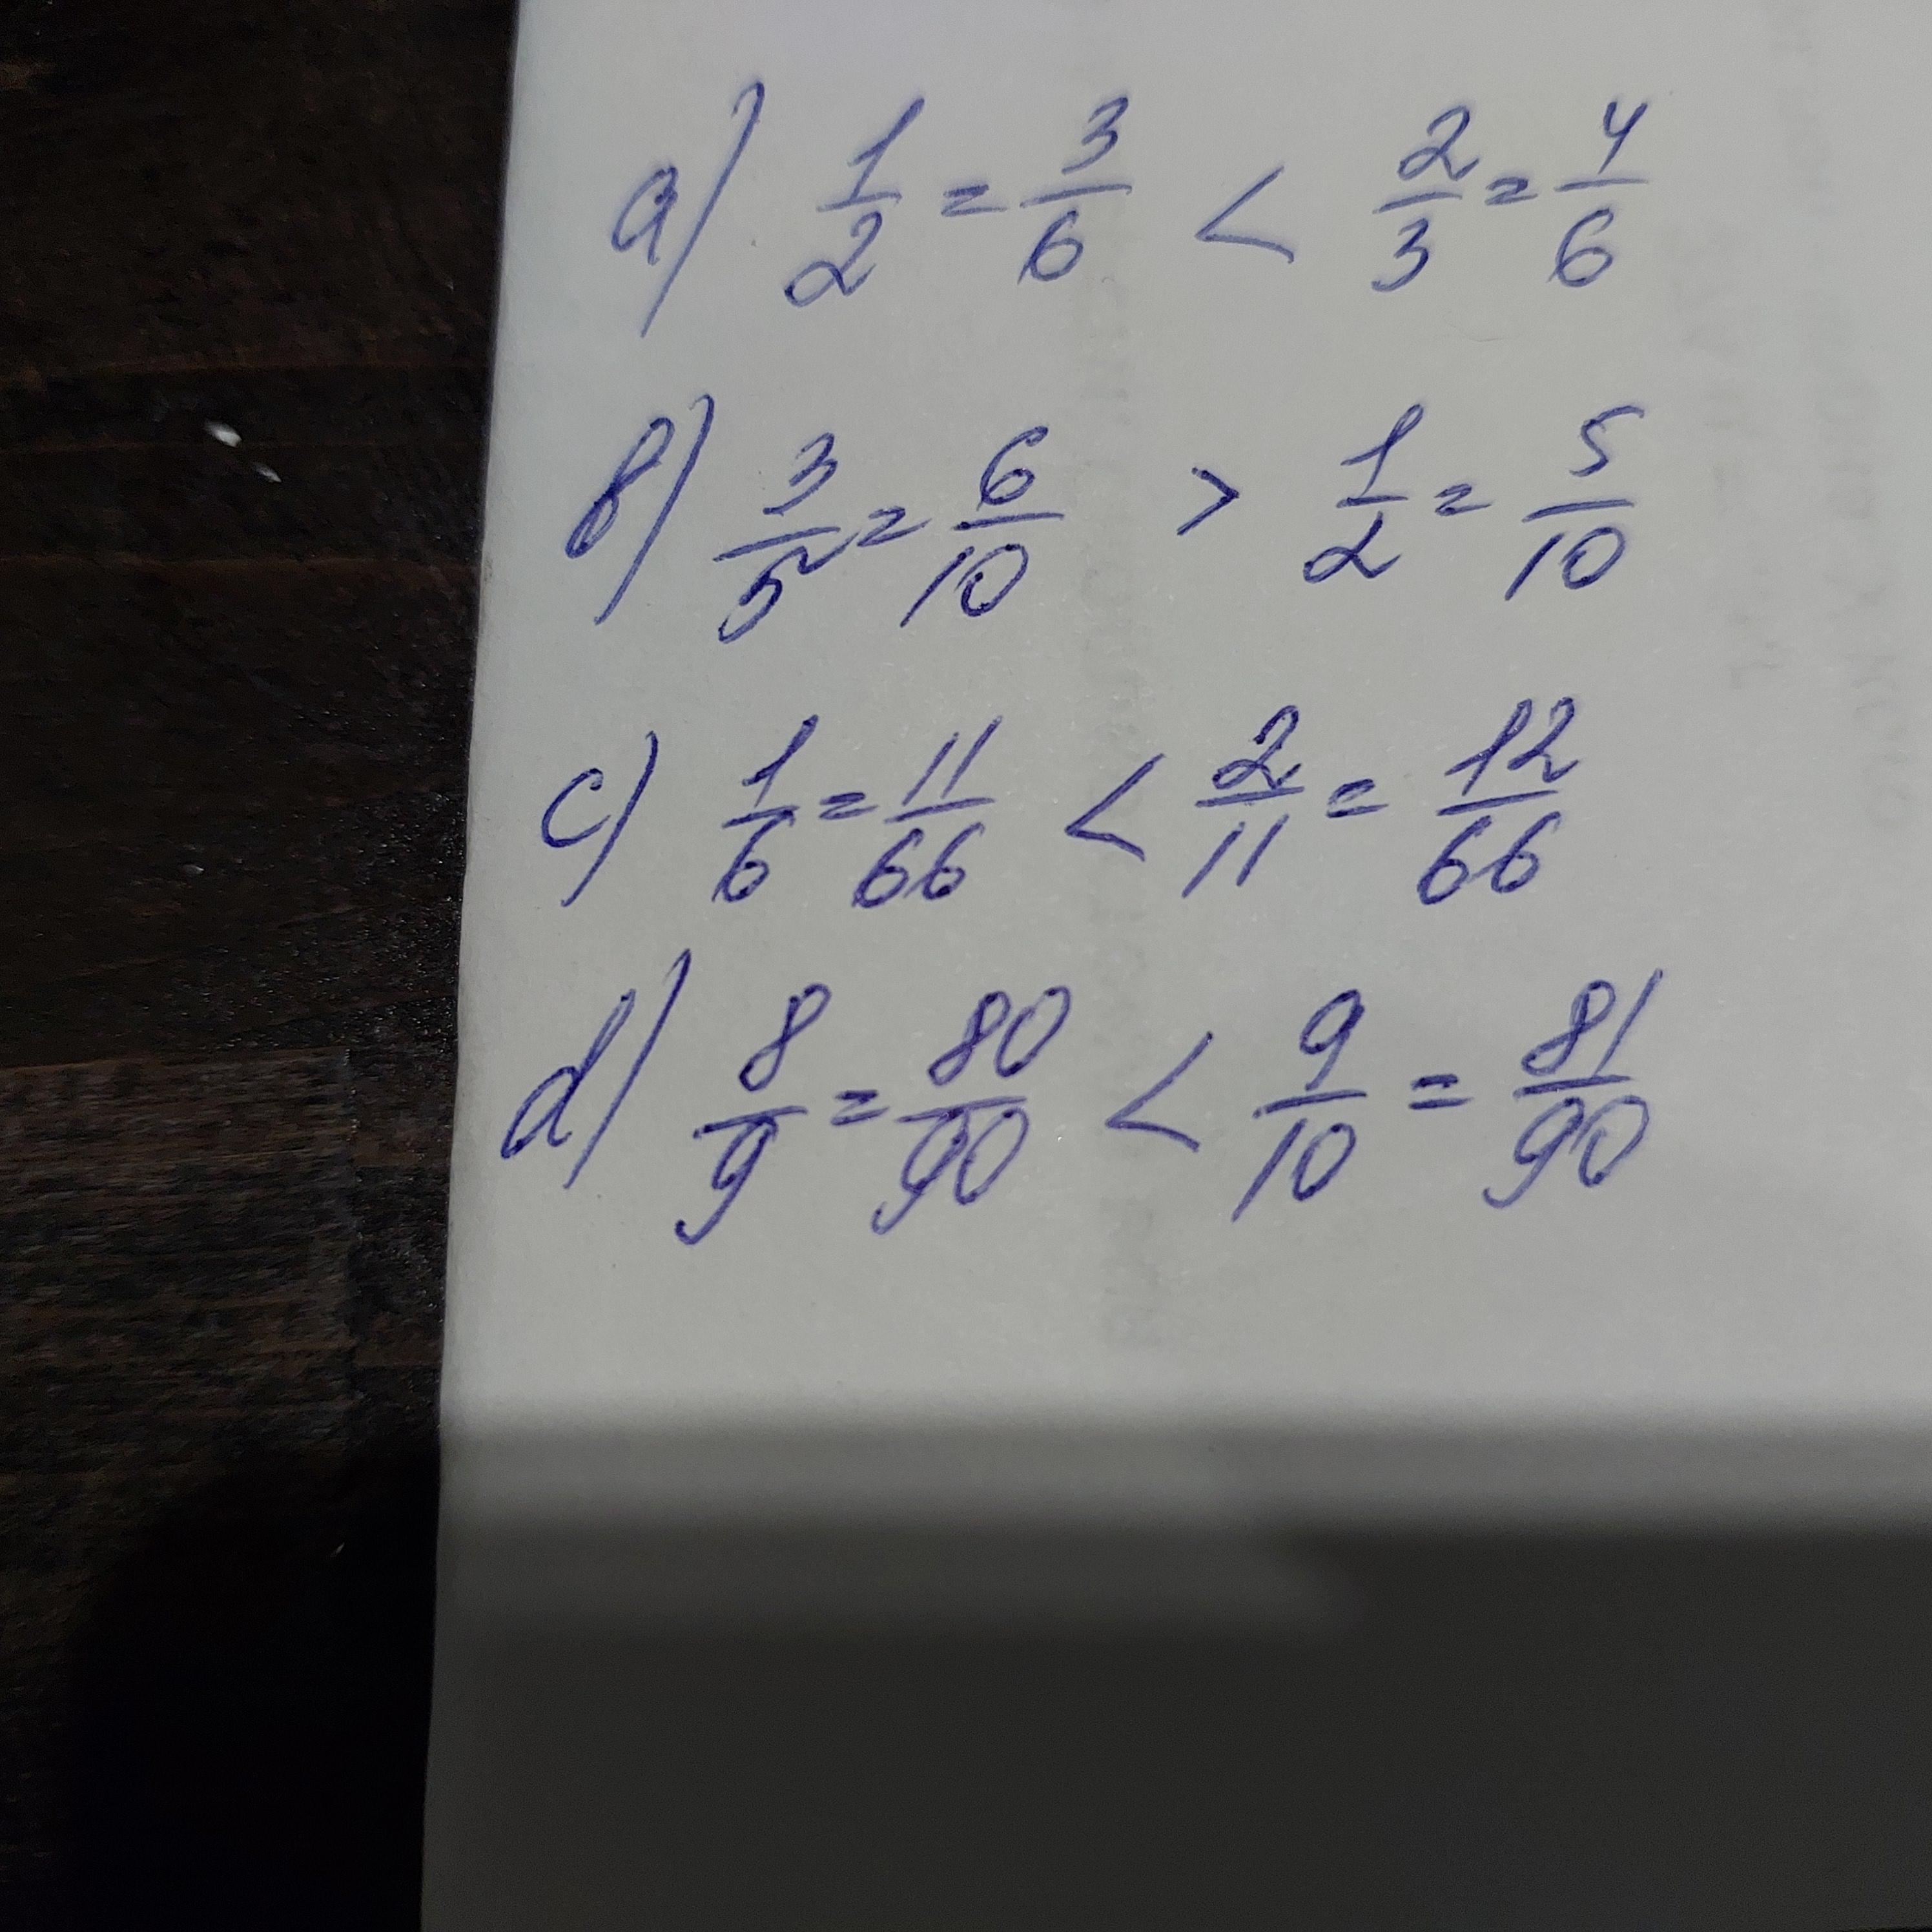 a) 1/2 = 3/6 < 2/3 = 4/6
b) 3/5 = 6/10 > 1/2 = 5/10
c) 1/6 = 11/66 < 2/11 = 12/66
d) 8/9 = 80/90 < 9/10 = 81/90